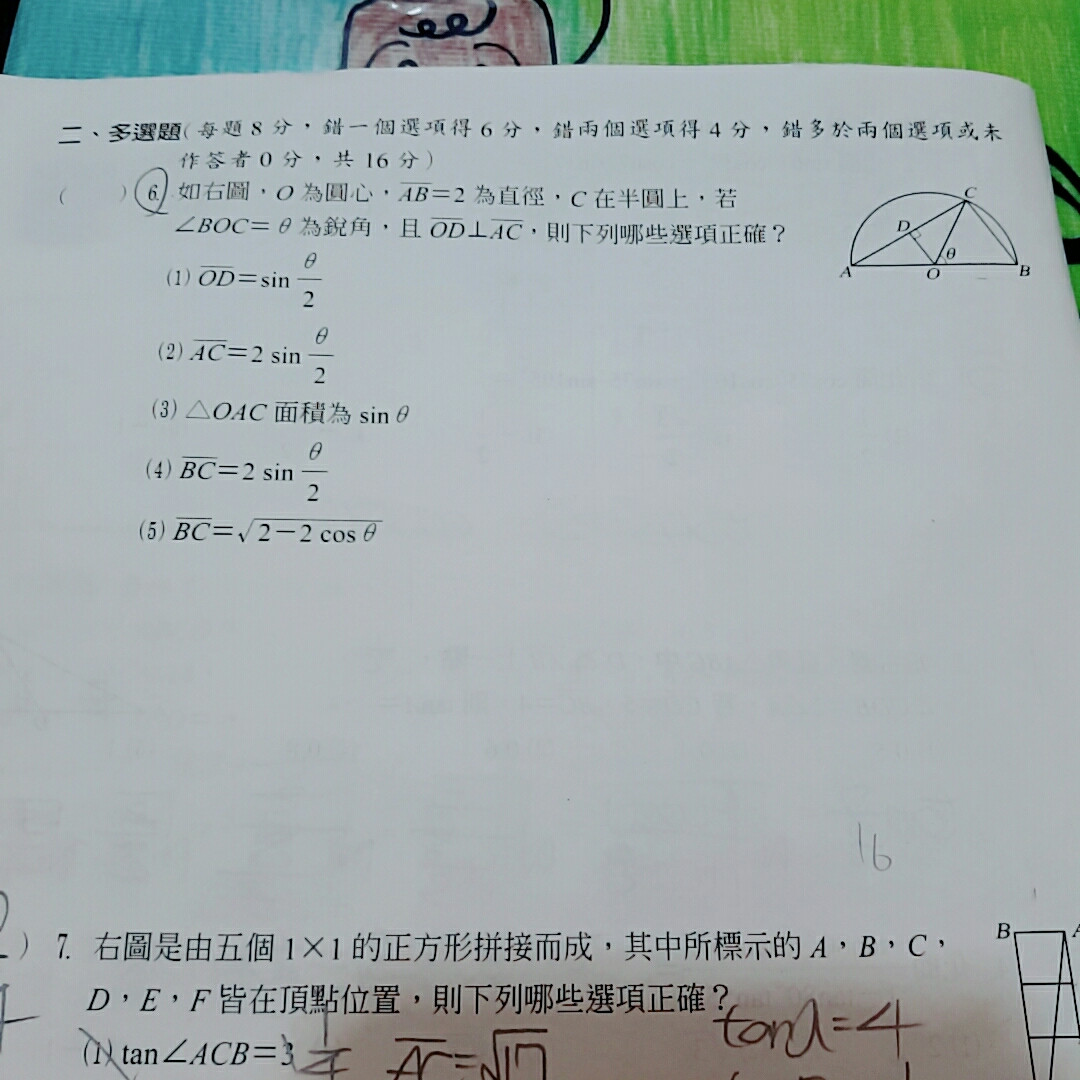 二、多選題(每題8分，錯一個選項得6分，錯兩個選項得4分，錯多於兩個選項或未
作答者0分，共16分)
( ) 6. 如右圖，O 為圓心，AB=2 為直徑，C 在半圓上，若
∠BOC=θ 為銳角，且 OD⊥AC，則下列哪些選項正確？
C
D
θ
A O B
(1) OD=sin θ/2
(2) AC=2 sin θ/2
(3) △OAC 面積為 sin θ
(4) BC=2 sin θ/2
(5) BC=√2-2 cos θ
16
) 7. 右圖是由五個 1×1 的正方形拼接而成，其中所標示的 A，B，C，
B A
D，E，F 皆在頂點位置，則下列哪些選項正確？
tanα=4
(1) tan∠ACB=3 1/4 AC=√17